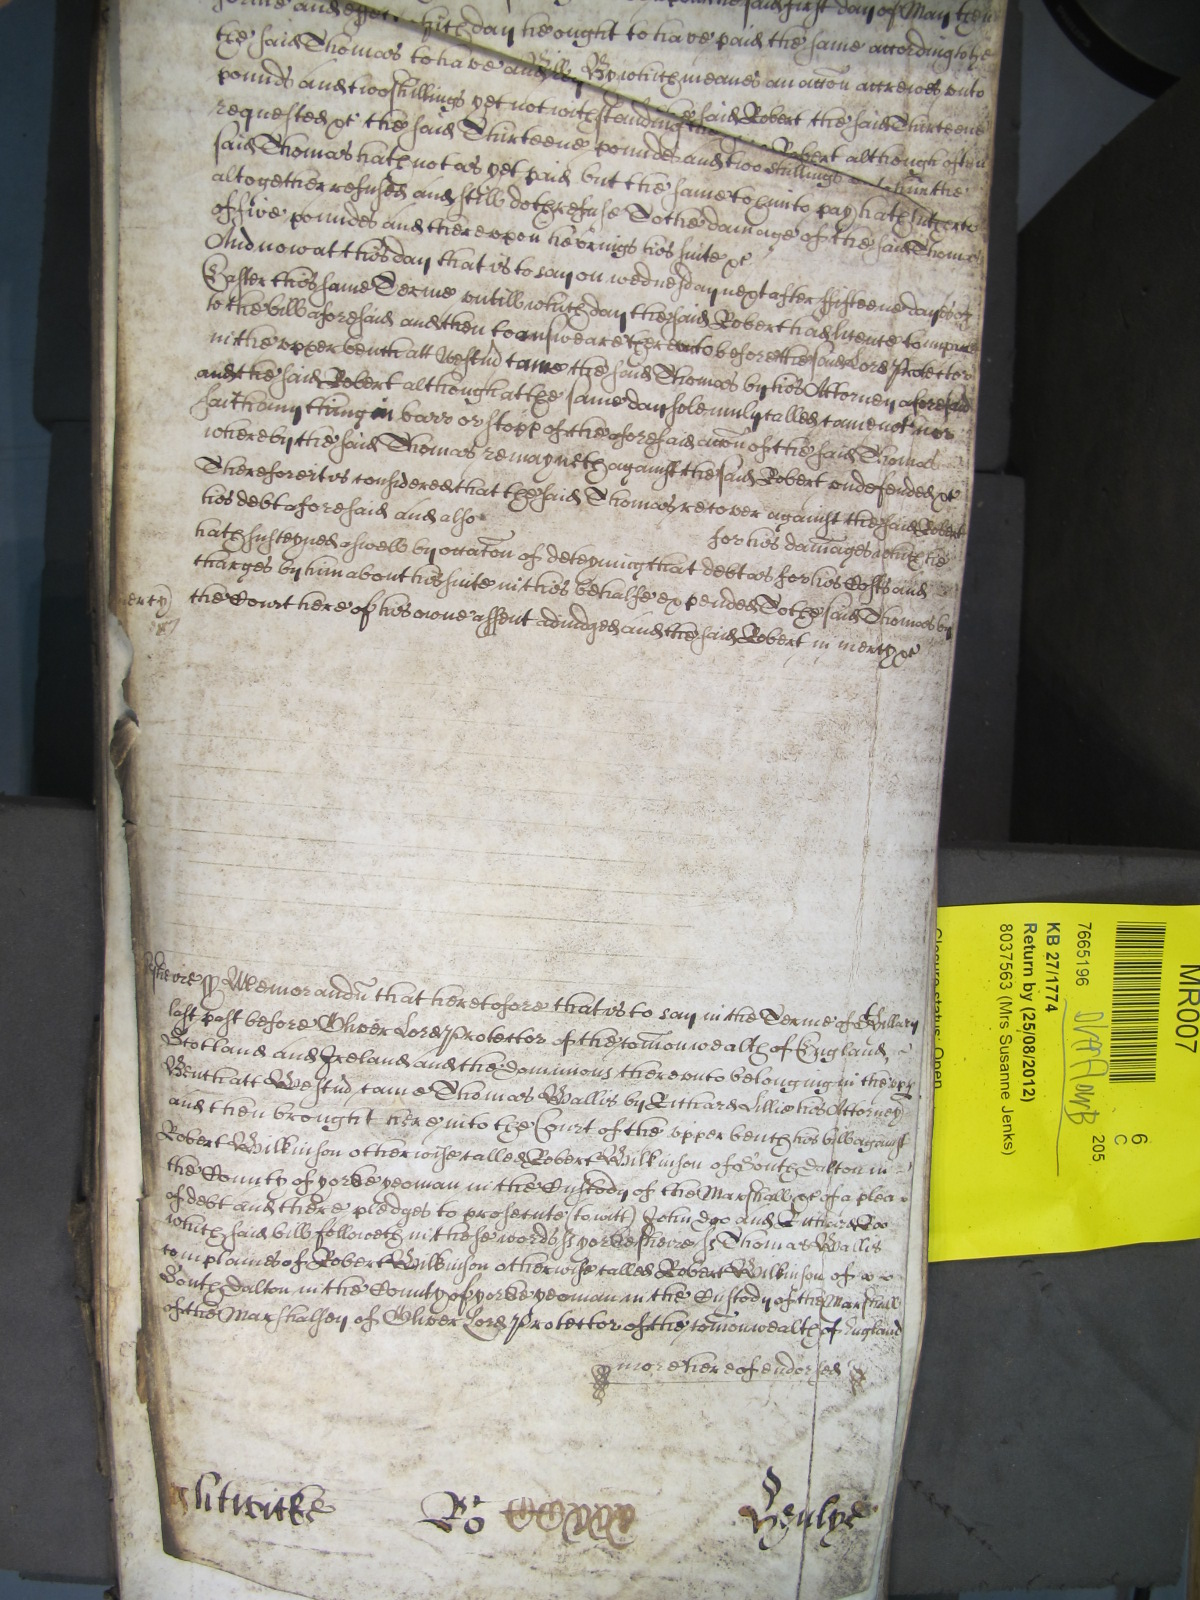 forme and effect which day he ought to have paid the same according to the
the said Thomas to have Bill By which meanes an accon accrewes unto
pounds and two shillings yet notwithstanding the said Robert the said Thirteene
requested &c the said Thirteene poundes and two shillings Robert although often
said Thomas hath not as yet paid but the same to him to pay hath hitherto
altogether refused and still doth refuse To the damage of the said Thomas
of five poundes and thereupon he brings his suite &c
And now at this day that is to say on wednesday next after fifteene dayes of
Easter this same Terme untill which day the said Robert had licence to imparle
to the bill aforesaid and then to answeare thereunto before the said Lord Protector
in the upper bench att Westm̃ came the said Thomas by his Attorney aforesaid
and the said Robert although att the same day solemnly called came not nor
saith any thing in barr or stopp of the aforesaid accon of the said Thomas
whereby the said Thomas remayneth against the said Robert undefended &c
Therefore it is considered that the said Thomas recover against the said Robert
his debt aforesaid and also for his damages which he
hath susteyned aswell by occacon of deteyning that debt as for his Costs and
charges by him about his suite in this behalfe expended To the said Thomas by
the Court here of his owne assent adiudged and the said Robert in mercy &c
ercy)
Memorandũ that heretofore that is to say in the Terme of St Hillary
last past before Oliver Lord Protector of the comonwealth of England
Scotland and Ireland and the dominions thereunto belonging in the upp
Bench att Westm̃ came Thomas Wallis by Richard Lillie his Attorney
and then brought here into the Court of the upper bench his bill against
Robert Wilkinson otherwise called Robert Wilkinson of South Dalton in
the County of yorke yeoman in the Custody of the Marshall &c of a plea
of debt and there pledges to prosecute (to witt) John Doo and Richard Roo
which said bill followeth in these words ss yorkeshere ss Thomas Wallis
complaines of Robert Wilkinson otherwise called Robert Wilkinson of
South Dalton in the County of yorke yeoman in the Custody of the Marshall
of the Marshalsey of Oliver Lord Protector of the comonwealth of England
more hereof endorsed
Ro
MR007
6
C
205
7665196
KB 27/1774
Return by (25/08/2012)
8037563 (Mrs Susanne Jenks)
Closure status: Open